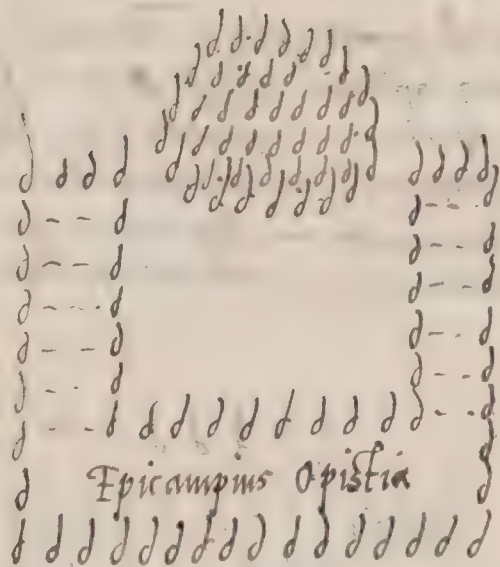 Epicampius Opistia